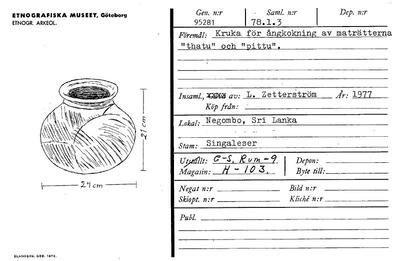 ETNOGRAFISKA MUSEET, Göteborg
ETNOGR. ARKEOL.
Gen. n:r 95281
Saml. n:r 78.1.3
Dep. n:r
Föremål: Kruka för ångkokning av maträtterna
"thatu" och "pittu".
Insaml. av: L. Zetterström År: 1977
Köp från:
Lokal: Negombo, Sri Lanka
Stam: Singaleser
Utställt: G-S, Rum-9 Depon:
Magasin: H-103. Byte till:
Negat. n:r Bild n:r
Skiopt. n:r Kliché n:r
Publ.
21 cm
24 cm